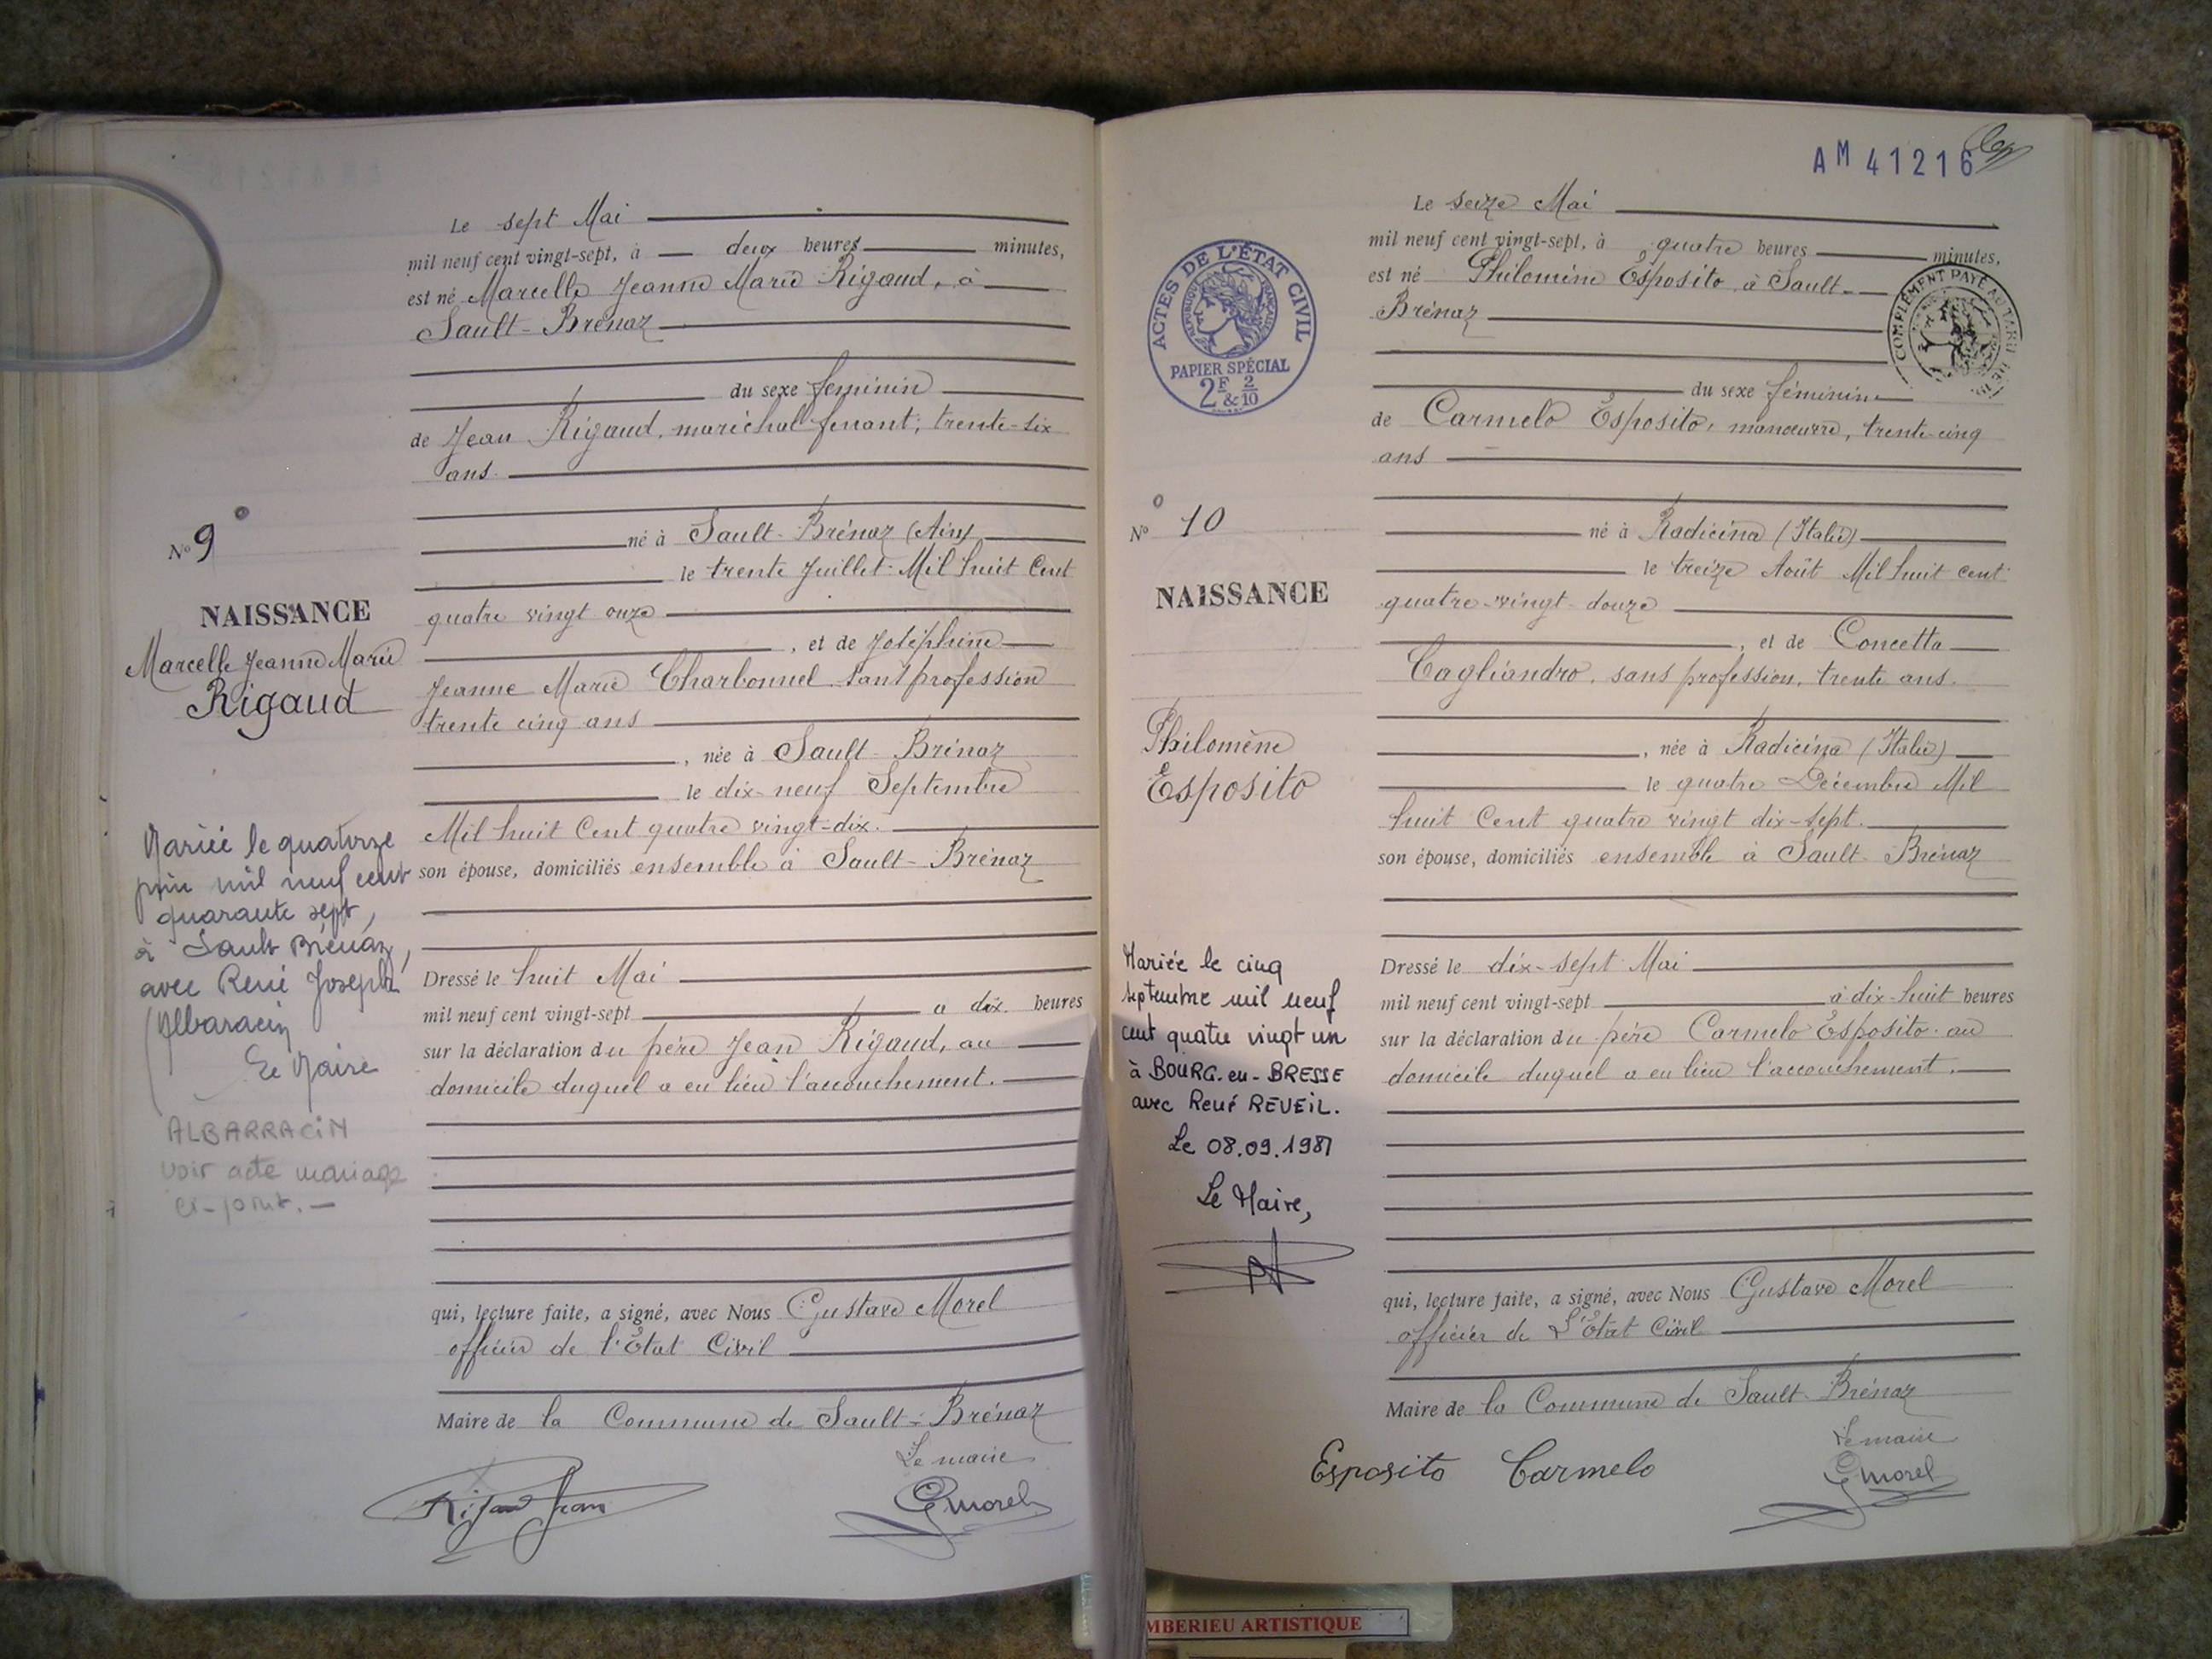 Le sept Mai
mil neuf cent vingt-sept, à deux heures minutes,
est né Marcelle Jeanne Marie Rigaud, à
Sault-Brénaz
du sexe féminin
de Jean Rigaud, maréchal ferrant, trente-six
ans.
né à Sault-Brénaz (Ain)
le trente Juillet Mil huit Cent
quatre vingt onze
, et de Joséphine
Jeanne Marie Charbonnel sans profession
trente cinq ans
, née à Sault-Brénaz
le dix-neuf Septembre
Mil huit Cent quatre vingt-dix.
son épouse, domiciliés ensemble à Sault-Brénaz
Dressé le huit Mai
mil neuf cent vingt-sept a dix heures
sur la déclaration du père Jean Rigaud, au
domicile duquel a eu lieu l'accouchement.
qui, lecture faite, a signé, avec Nous Gustave Morel
officier de l'État Civil
Maire de la Commune de Sault-Brénaz
Le maire
Rigaud Jean
GMorel
No 9
NAISSANCE
Marcelle Jeanne Marie
Rigaud
Mariée le quatorze
juin mil neuf cent
quarante sept,
à Sault Brénaz,
avec René Joseph
Albaracin
Le Maire
ALBARRACIN
voir acte mariage
ci-joint.-
AM 41216
ACTES DE L'ÉTAT CIVIL
RÉPUBLIQUE FRANÇAISE
PAPIER SPÉCIAL
2F & 2/10
COMPLÉMENT PAYÉ AU TARIF
Le seize Mai
mil neuf cent vingt-sept, à quatre heures minutes,
est né Philomène Esposito à Sault-
Brénaz
du sexe féminin
de Carmelo Esposito, manœuvre, trente-cinq
ans
né à Radicina (Italie)
le treize Août Mil huit cent
quatre-vingt-douze
, et de Concetta
Cagliandro, sans profession, trente ans.
, née à Radicina (Italie)
le quatre Décembre Mil
huit Cent quatre vingt dix-sept.
son épouse, domiciliés ensemble à Sault-Brénaz
Dressé le dix-sept Mai
mil neuf cent vingt-sept à dix-huit heures
sur la déclaration du père Carmelo Esposito au
domicile duquel a eu lieu l'accouchement.
qui, lecture faite, a signé, avec Nous Gustave Morel
officier de L'État Civil
Maire de la Commune de Sault-Brénaz
Le maire
Esposito Carmelo
GMorel
No 10
NAISSANCE
Philomène
Esposito
Mariée le cinq
septembre mil neuf
cent quatre vingt un
à BOURG-en-BRESSE
avec René REVEIL.
Le 08.09.1981
Le Maire,
MBERIEU ARTISTIQUE